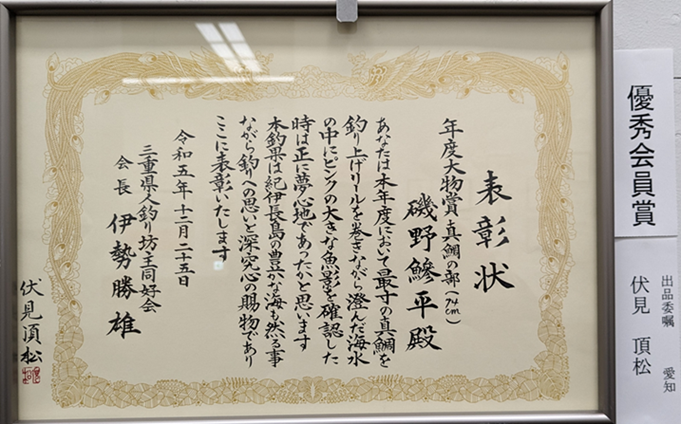 表彰状
年度大物賞 真鯛の部(74cm)
磯野鰺平殿
あなたは本年度において最寸の真鯛を
釣り上げリールを巻きながら澄んだ海水
の中にピンクの大きな魚影を確認した
時は正に夢心地であったと思います
本釣果は紀伊長島の豊かな海も然る事
ながら釣りへの思いと深究心の賜物であり
ここに表彰いたします
令和五年十二月二十五日
三重県人釣り坊主同好会
会長 伊勢勝雄
伏見頂松
優秀会員賞
出品委嘱 愛知
伏見 頂松